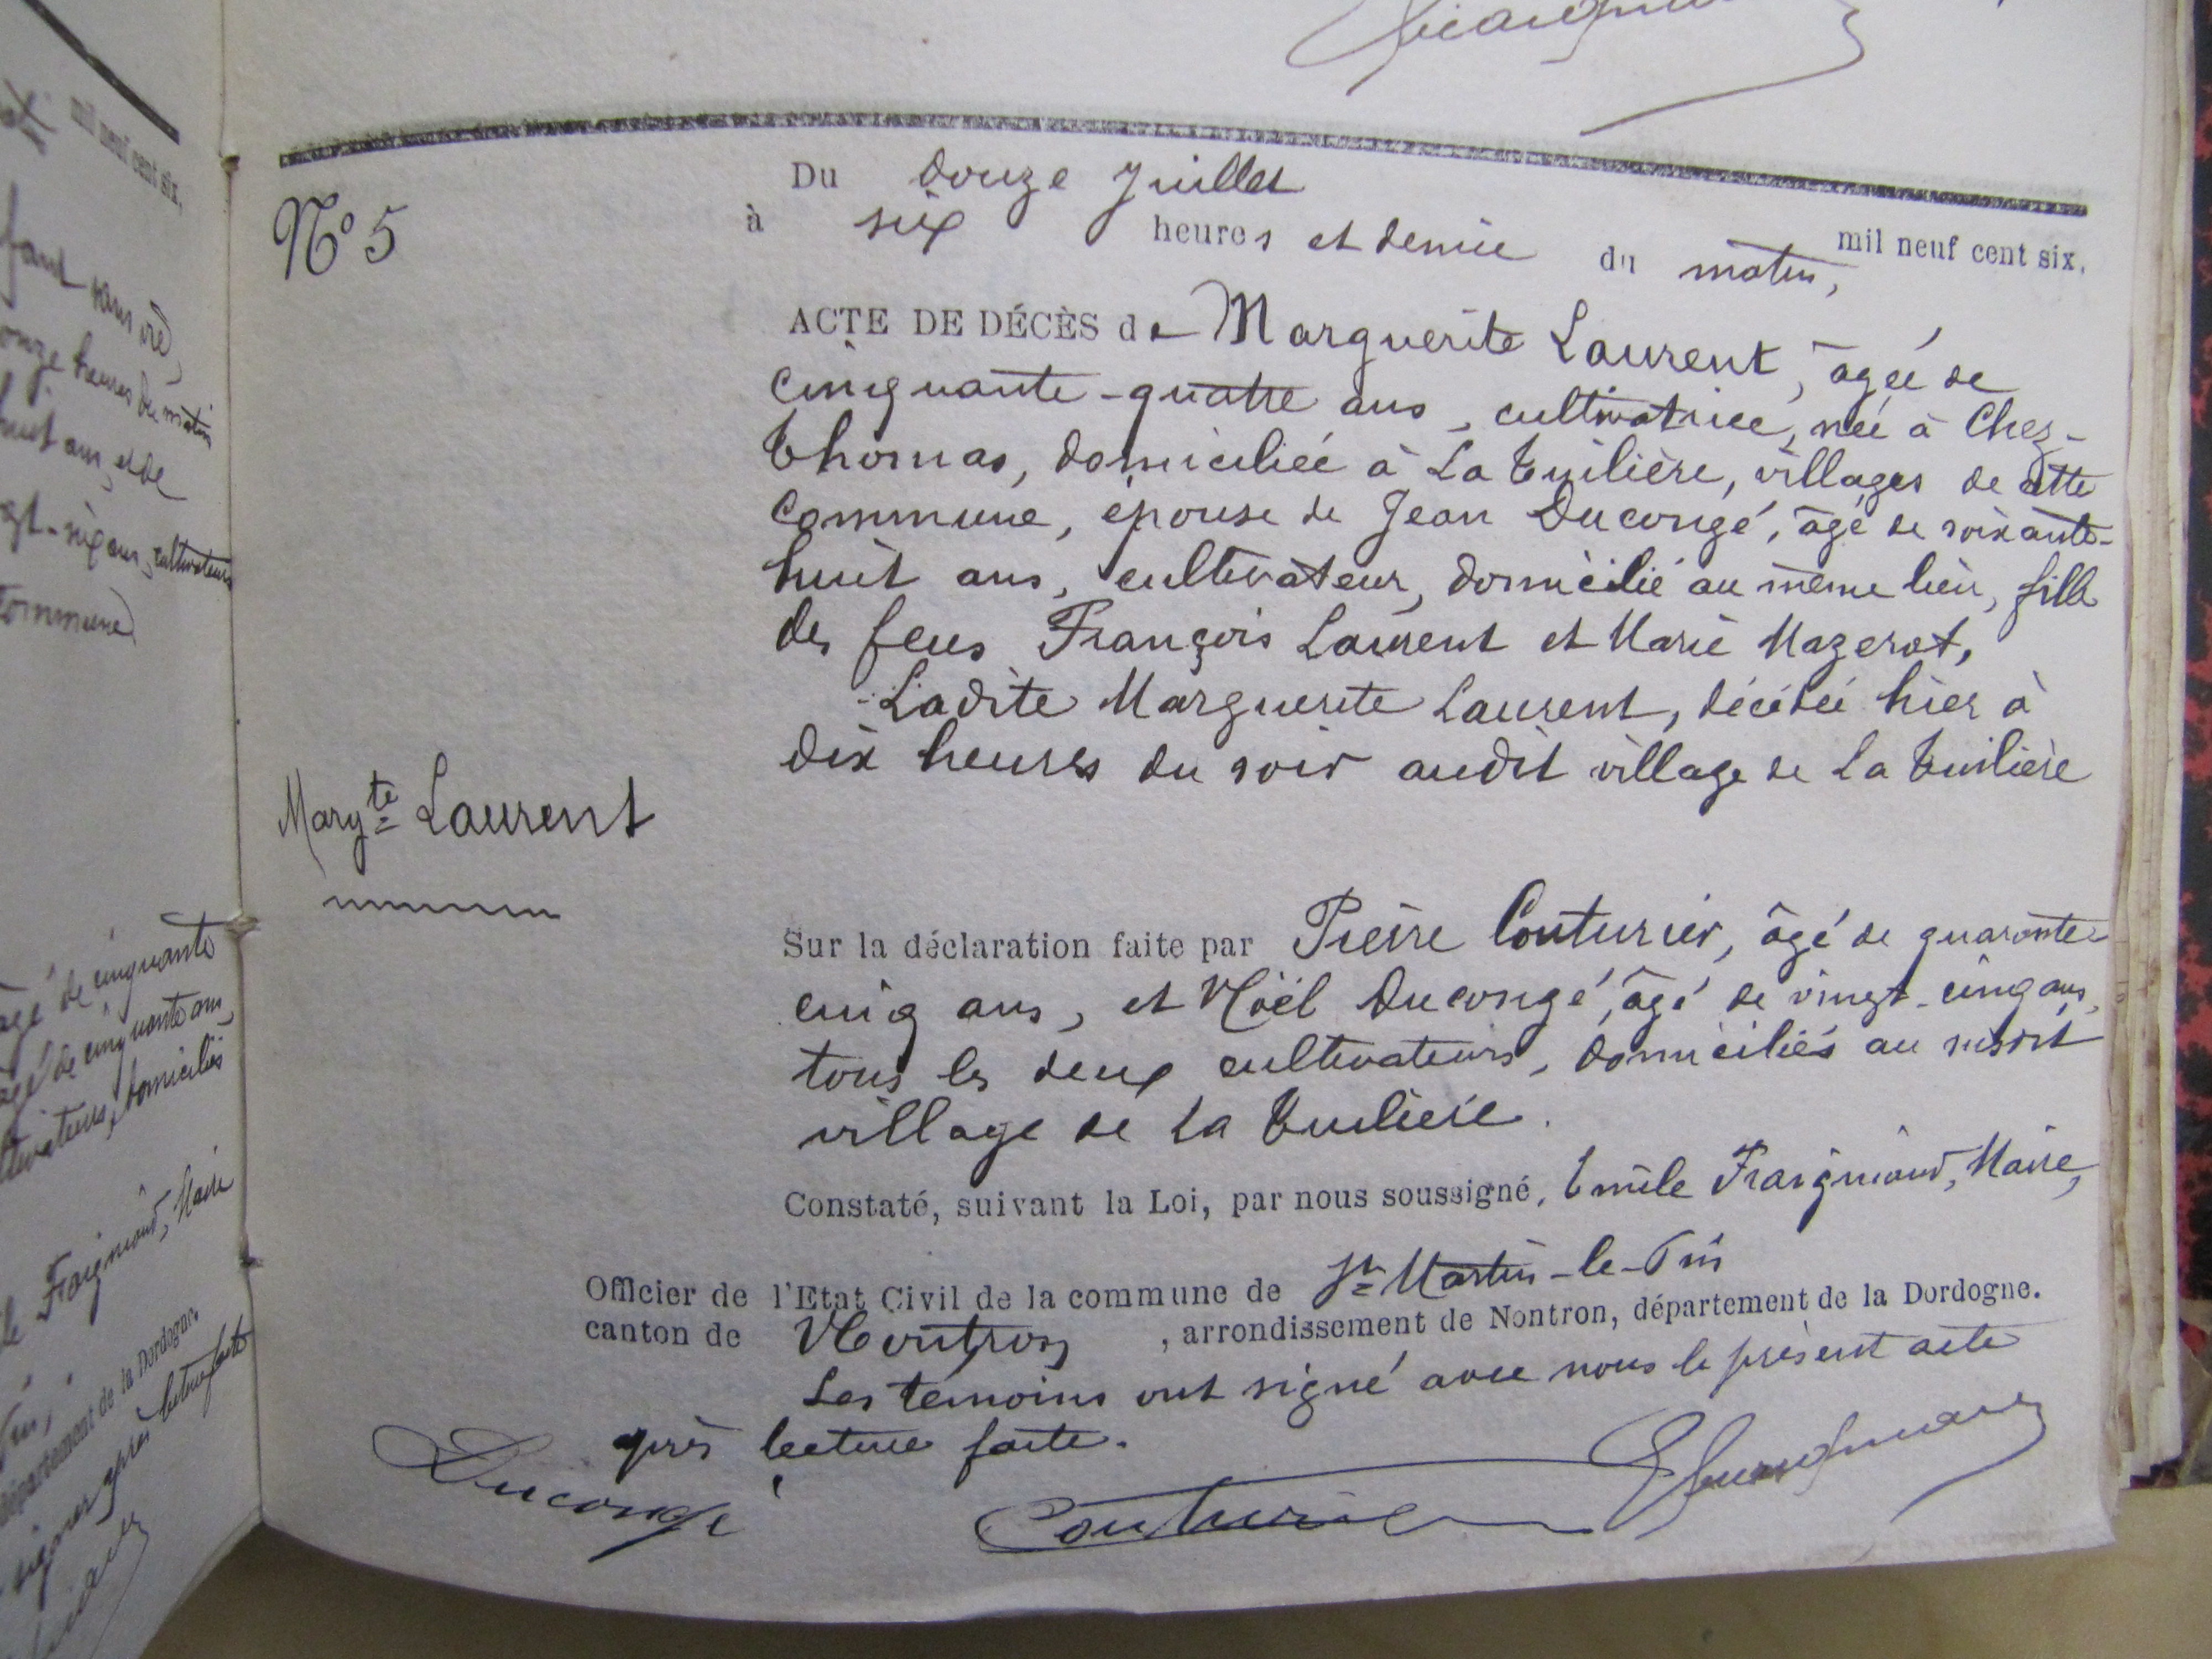 mil neuf cent six,
fant sans vie,
onze heures du matin
huit ans, et de
gt-six ans, cultivateurs
commune,
âgé de cinquante
âgé de cinquante ans,
domiciliés
Fraigniaud, Maire
département de la Dordogne.
après lecture faite
N° 5
Du douze Juillet mil neuf cent six,
à six heures et demie du matin,
ACTE DE DÉCÈS de Marguerite Laurent, âgée de
cinquante-quatre ans, cultivatrice, née à Chez-
Thomas, domiciliée à La Tuilière, villages de cette
commune, épouse de Jean Ducongé, âgé de soixante-
huit ans, cultivateur, domicilié au même lieu, fille
des feus François Laurent et Marie Mazerat,
Ladite Marguerite Laurent, décédée hier à
dix heures du soir audit village de La Tuilière
Margte Laurent
Sur la déclaration faite par Pierre Couturier, âgé de quarante-
cinq ans, et Noël Ducongé, âgé de vingt-cinq ans,
tous les deux cultivateurs, domiciliés au susdit
village de La Tuilière.
Constaté, suivant la Loi, par nous soussigné, Emile Fraigniaud, Maire,
Officier de l'Etat Civil de la commune de St Martin-le-Pin
canton de Nontron, arrondissement de Nontron, département de la Dordogne.
Les témoins ont signé avec nous le présent acte
après lecture faite.
Ducongé
Couturier